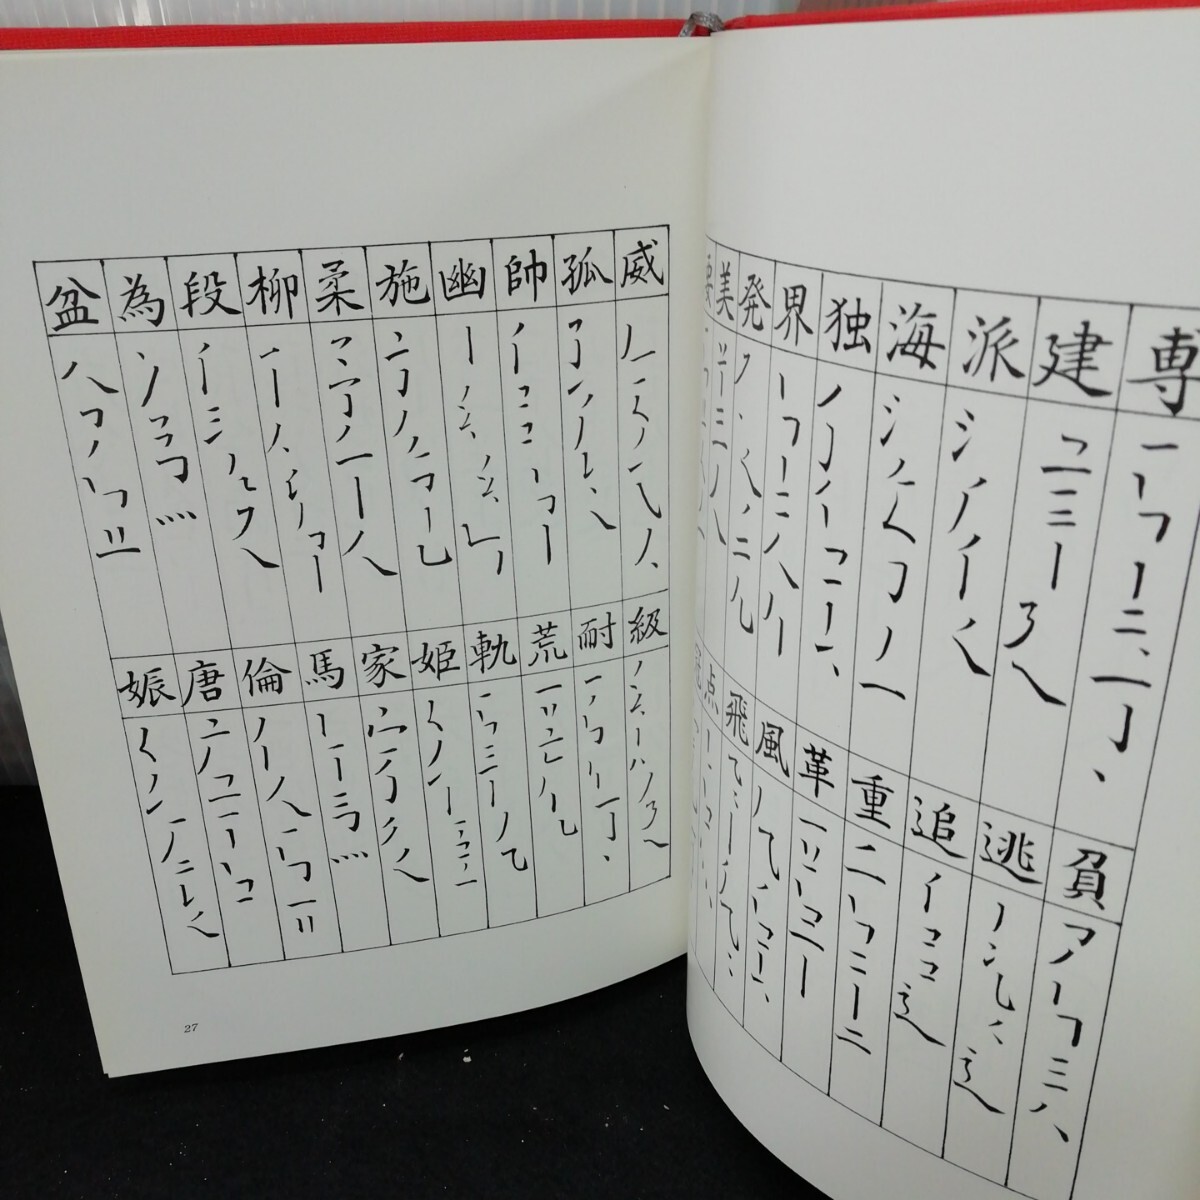 専建派海独界発美要
貧逃追重革風飛点
威孤帥幽施柔柳段為盆
級耐荒軌姫家馬倫唐娠
27